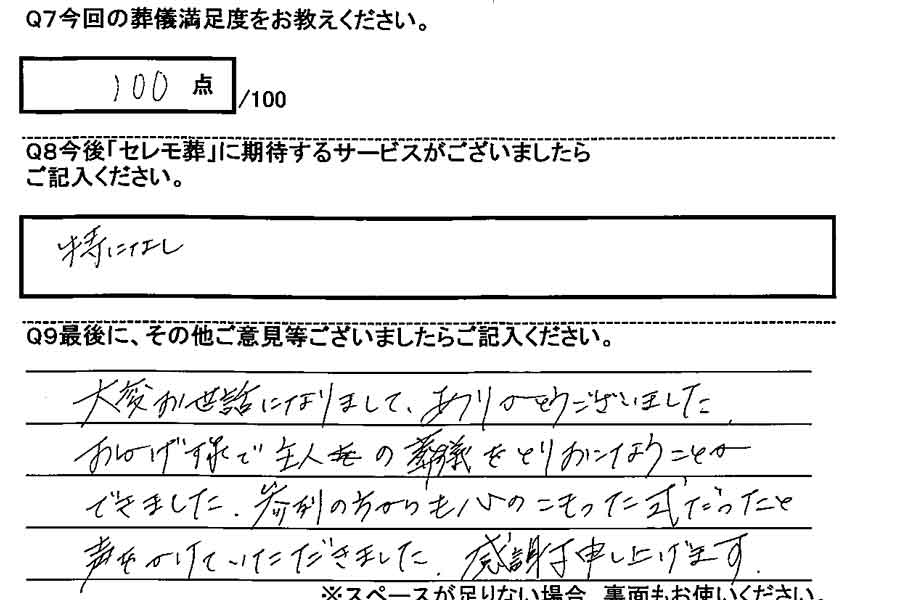 Q7今回の葬儀満足度をお教えください。
100 点 /100
Q8今後「セレモ葬」に期待するサービスがございましたら
ご記入ください。
特になし
Q9最後に、その他ご意見等ございましたらご記入ください。
大変お世話になりまして、ありがとうございました。
おかげ様で主人の葬儀をとりおこなうことが
できました。参列の方からも心のこもった式だったと
声をかけていただきました。感謝申し上げます。
※スペースが足りない場合、裏面もお使いください。